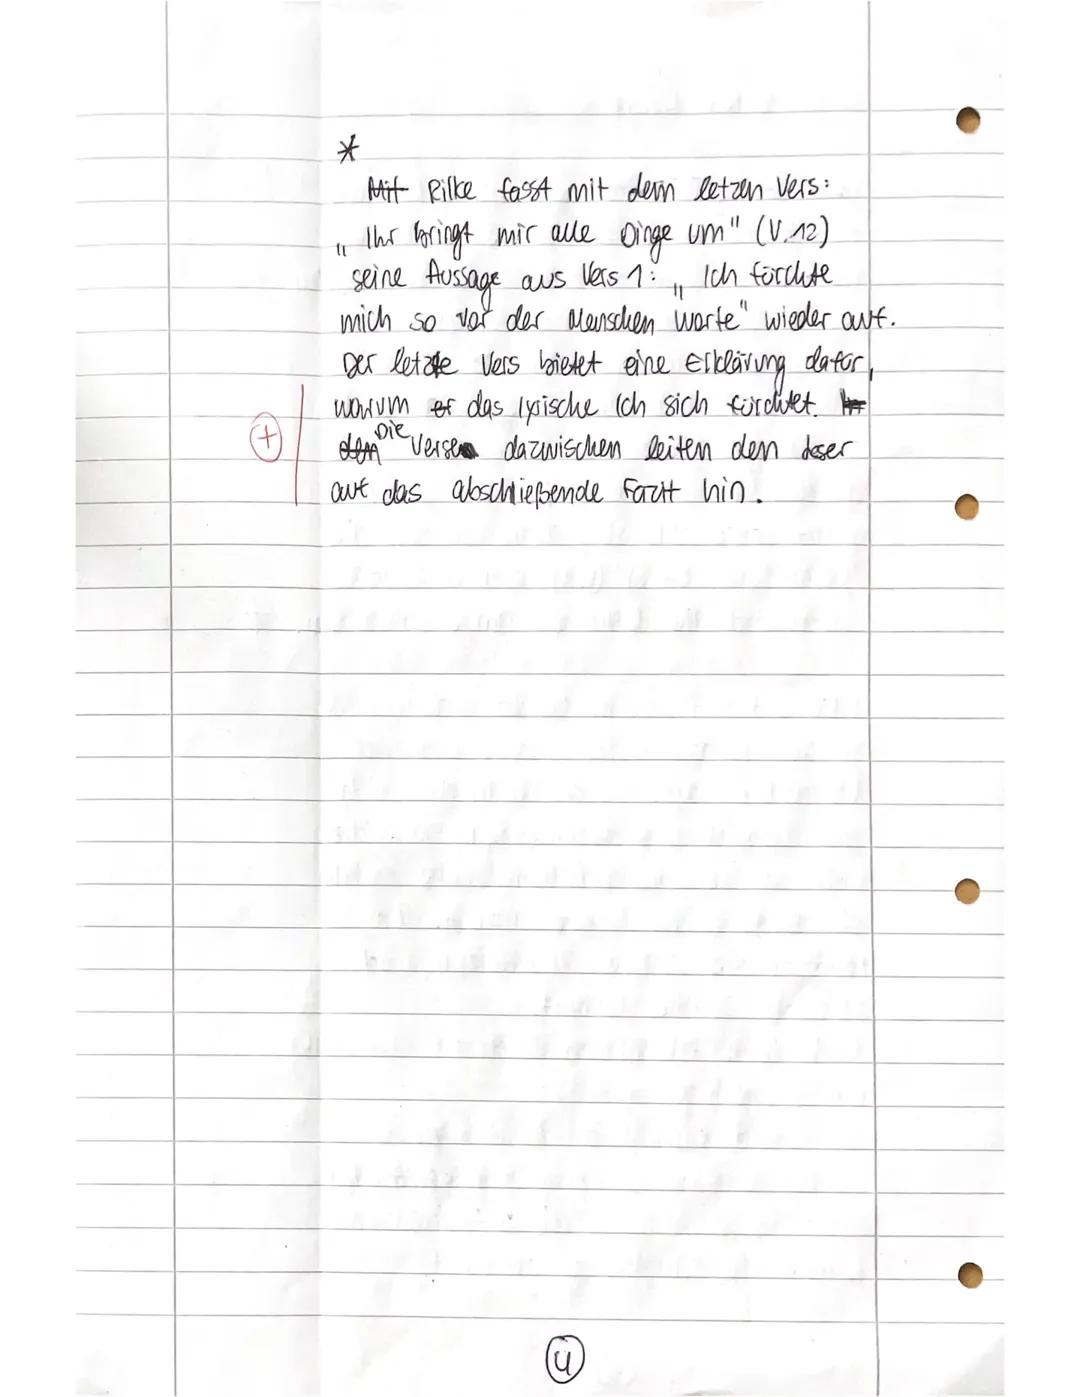 *
Mit Rilke fasst mit dem letzen Vers:
„Ihr bringt mir alle Dinge um" (V.12)
seine Aussage aus Vers 1: „Ich fürchte
mich so vor der Menschen Worte" wieder auf.
Der letzte Vers bietet eine Erklärung dafür,
warum er das lyrische Ich sich fürchtet. In
dem Die Verse dazwischen leiten den Leser
auf das abschließende Fazit hin.
+
4